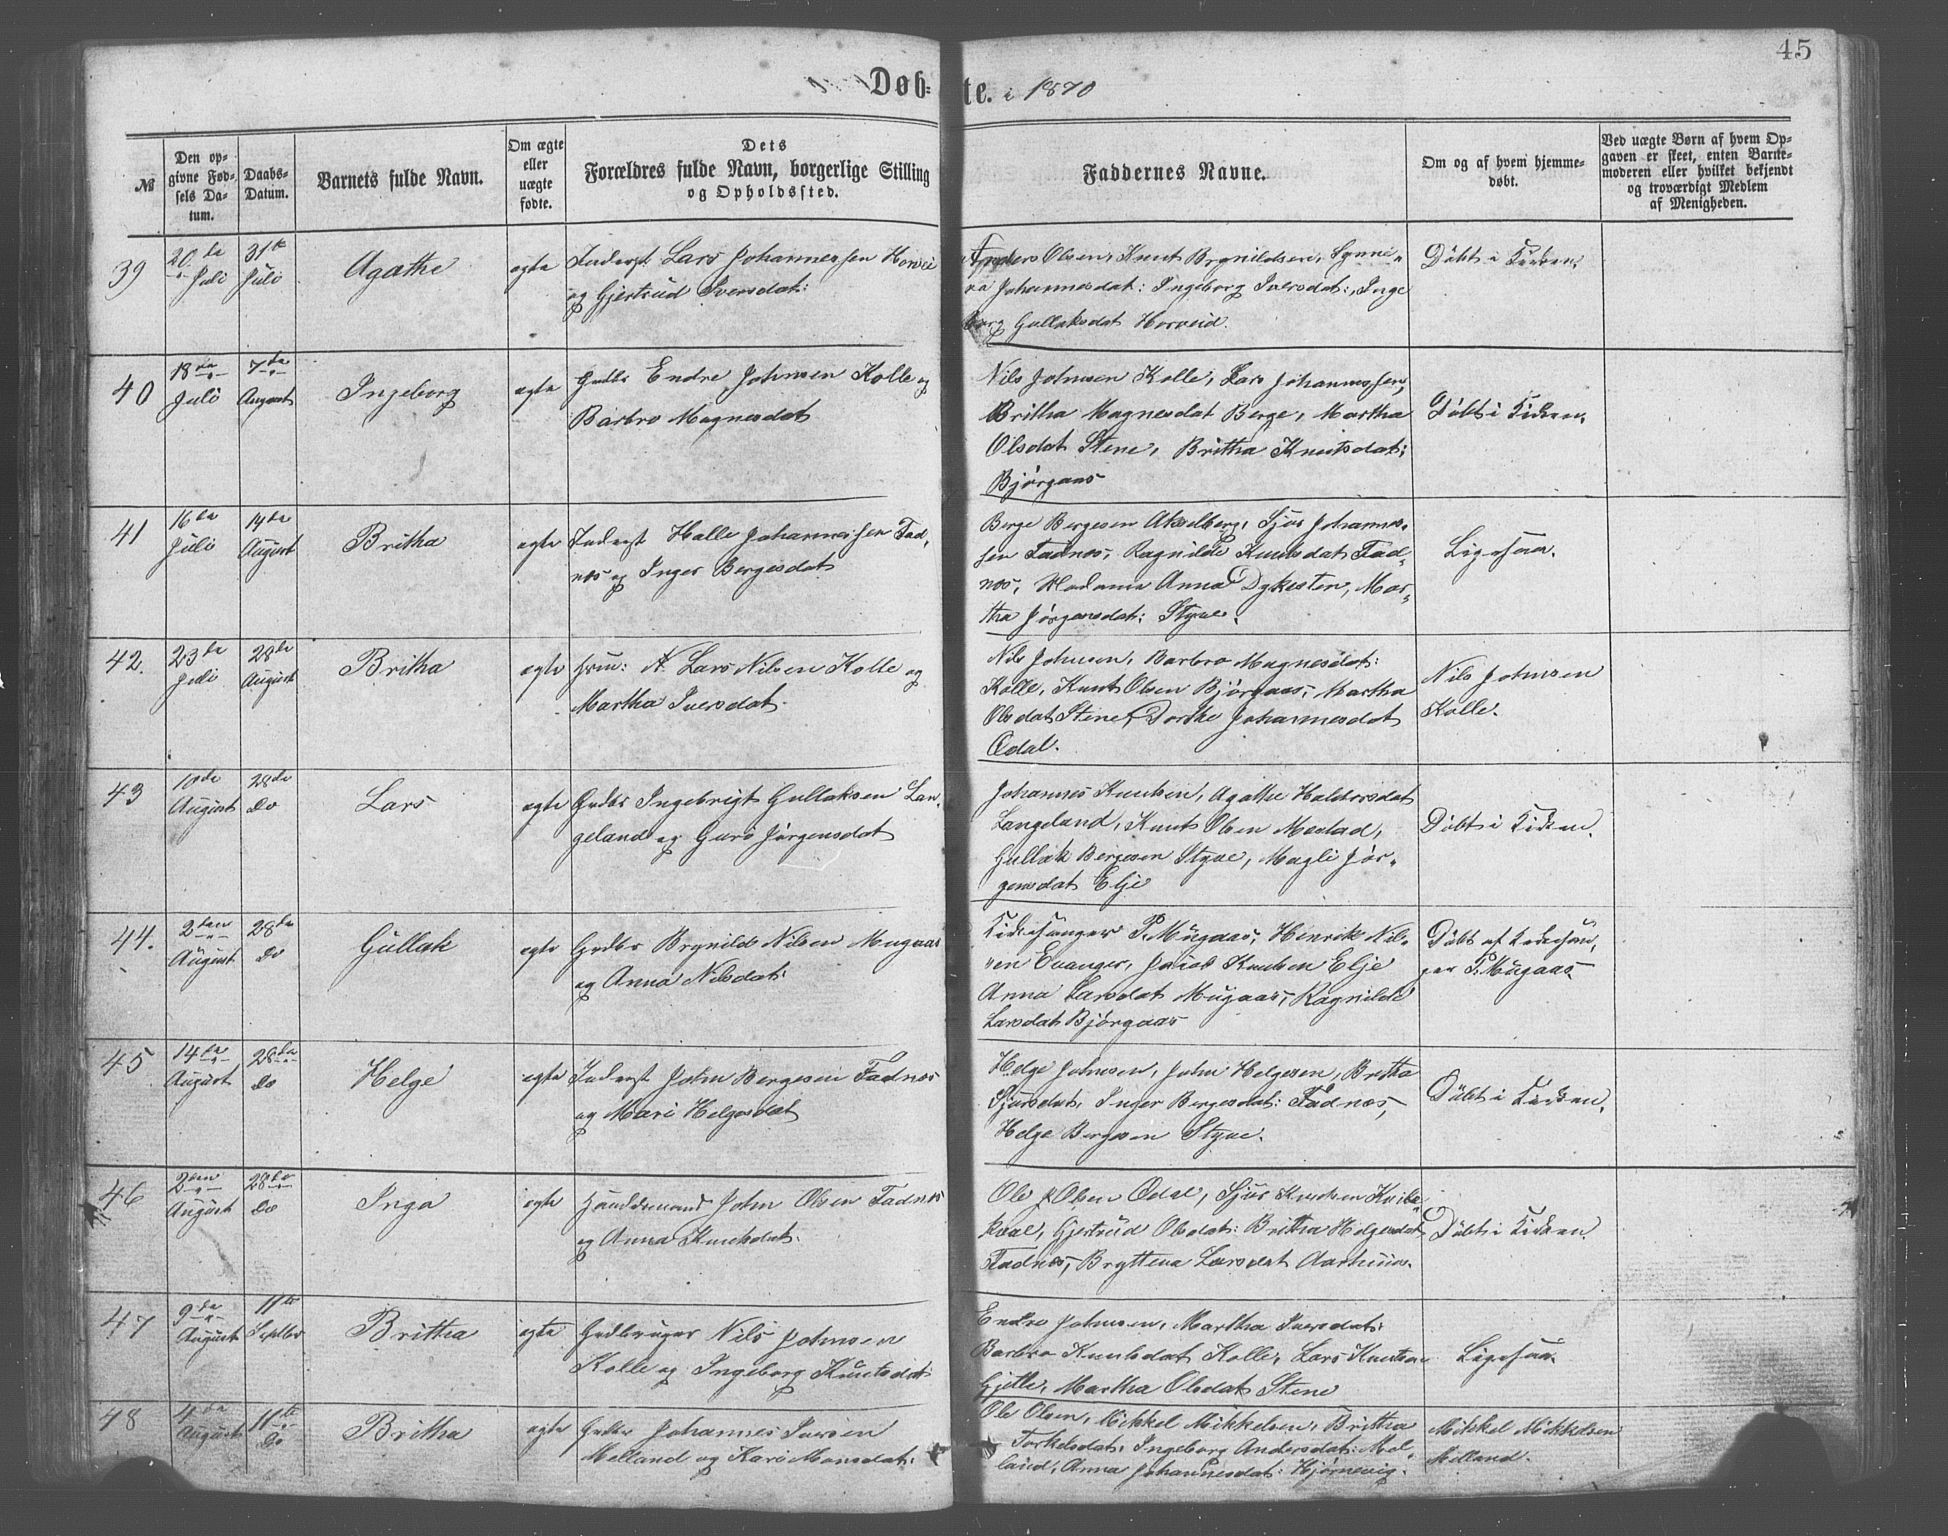 45
Døb-te. i 1870
№
Den op-
givne Fød-
sels Da-
tum.
Daabs-
Datum.
Barnets fulde Navn.
Om ægte
eller
uægte
fødte.
Dets
Forældres fulde Navn, borgerlige Stilling
og Opholdssted.
Faddernes Navne.
Om og af hvem hjemme-
døbt.
Ved uægte Børn af hvem Op-
gaven er skeet, enten Barne-
moderen eller hvilket bekjendt
og troværdigt Medlem
af Menigheden.
39
20de
Juli
31te
Juli
Agathe
ægte
Inderst Lars Johannessen Horvei
og Gjertrud Iversdat:
Anders Olsen, Knut Brynildsen, Synne-
va Johannesdat: Ingeborg Iversdat:, Inge
borg Gullaksdat Horveid.
Döbt i Kirken.
40
18de
Juli
7de
August
Ingeborg
ægte
Grdbr Endre Johnsen Kolle og
Barbro Magnesdat
Nils Johnsen Kolle, Lars Johannessen,
Britha Magnesdat Berge, Martha
Olsdat Stene, Britha Knutsdat:
Bjørgaas
Döbt i Kirken.
41
16de
Juli
14de
August
Britha
ægte
Inderst Halle Johannessen Fad-
næs og Inger Bergesdat
Berge Bergesen Akselberg, Sjur Johannes-
sen Fadnæs, Ragnilde Knutsdat Fad-
næs, Madame Anna Dyksten, Mar-
tha Jörgensdat: Styve.
Ligesaa.
42.
23de
Juli
28de
August
Britha
ægte
Lars Nilsen Kolle og
Martha Iversdat.
Nils Johnsen, Barbro Magnesdat:
Kolle, Knut Olsen Bjørgaas, Martha
Olsdat Stene, Dorthe Johannesdat
Ædal.
Nils Johnsen
Kolle.
43
10de
August
28de
do
Lars
ægte
Grdbr Ingebrigt Gullaksen Lan-
geland og Guro Jörgensdat
Johannes Knutsen, Agathe Haldorsdat
Langeland, Knut Olsen Mestad,
Gullak Bergesen Styve, Magli Jör-
gensdat Elje
Döbt i Kirken.
44.
2den
August
28de
Do
Gullak
ægte
Grdbr Brynild Nilsen Mugaas
og Anna Nilsdat:
Kirkesanger P. Mugaas, Henrik Nil-
sen Evanger, Jacob Knutsen Elje
Anna Larsdat Mugaas, Ragnilde
Larsdat Bjørgaas
Döbt af Kirkesan-
ger P. Mugaas.
45
14de
August
28de
Do
Helge
ægte
Inderst John Bergesen Fadnæs
og Mari Helgesdat
Helge Johnsen, John Helgesen, Britha
Sjursdat, Inger Bergesdat: Fadnæs,
Helge Bergesen Styve.
Döbt i Kirken.
46
2den
August
28de
Do
Inga
ægte
Husmand John Olsen Fadnæs
og Anna Knutsdat.
Ole J. Olsen Ædal, Sjur Knutsen Kvile-
kval, Gjertrud Olsdat: Britha Helgesdat
Fadnæs, Brytteva Larsdat Aarhuus.
Döbt i Kirken.
47
9de
August
11te
Septbr
Britha
ægte
Grdbruger Nils Johnsen
Kolle og Ingeborg Knutsdat
Endre Johnsen, Martha Iversdat:
Barbro Knutsdat Kolle, Lars Knutsen
Gjelle, Martha Olsdat Stene
Ligesaa.
48
4de
August
11te
Do
Britha
ægte
Grdbr Johannes Iversen
Melland og Kari Monsdat:
Ole Olsen, Mikkel Mikkelsen, Britha
Torkelsdat, Ingeborg Andersdat: Mel-
land, Anna Johannesdat: Hjørnevig.
Mikkel Mikkelsen
Melland.